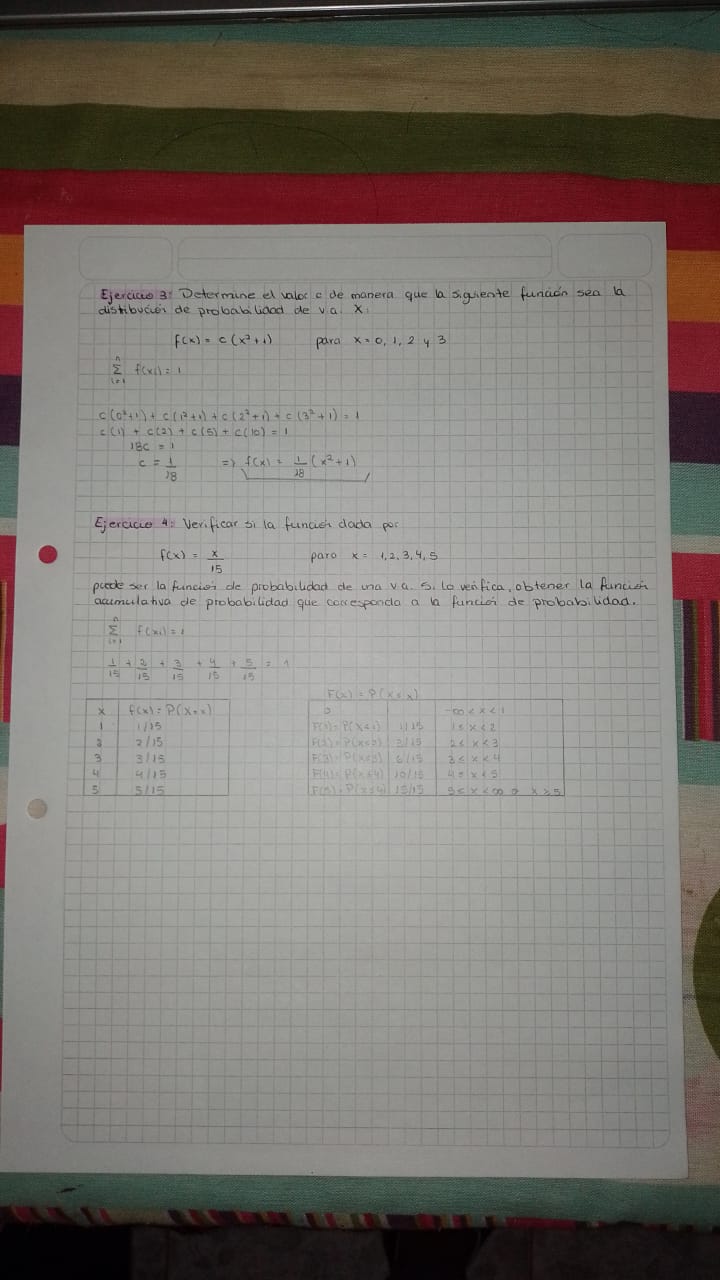 Ejercicio 3: Determine el valor c de manera que la siguiente función sea la
distibución de probabilidad de v a. X:
f(x) = c (x²+1) para x = 0, 1, 2 y 3
n
Σ f(xi) = 1
i=1
c (0²+1) + c (1²+1) + c (2²+1) + c (3²+1) = 1
c (1) + c (2) + c (5) + c (10) = 1
18c = 1
c = 1/18 => f(x) = 1/18 (x²+1)
Ejercicio 4: Verificar si la función dada por
f(x) = x/15 para x = 1, 2, 3, 4, 5
puede ser la función de probabilidad de una v a. Si lo verifica, obtener la función
acumulativa de probabilidad que corresponda a la función de probabilidad.
n
Σ f(xi) = 1
i=1
1/15 + 2/15 + 3/15 + 4/15 + 5/15 = 1
F(x) = P(X≤x)
x f(x) = P(X=x)
1 1/15
2 2/15
3 3/15
4 4/15
5 5/15
0 -∞ < x < 1
F(1) = P(X≤1) 1/15 1 ≤ x < 2
F(2) = P(X≤2) 3/15 2 ≤ x < 3
F(3) = P(X≤3) 6/15 3 ≤ x < 4
F(4) = P(X≤4) 10/15 4 ≤ x < 5
F(5) = P(X≤4) 15/15 5 ≤ x < ∞ o x ≥ 5